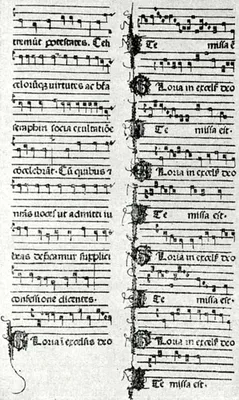 tremūt potestates. Celi
celorūqȝ virtutes ac bt̄a
seraphin socia exultatiōe
cōcelebrāt. Cū quibus ⁊
nr̄as voces ut admitti iu
beas deprecamur supplici
confessione dicentes.
Gloria ī excelsis deo
Ite missa ē
Gloria in excels̄ deo
Ite missa est.
Gloria in excels̄ deo
Ite missa est.
Gloria in excels̄ deo
Ite missa est.
Gloria in excels̄ deo
Ite missa est.